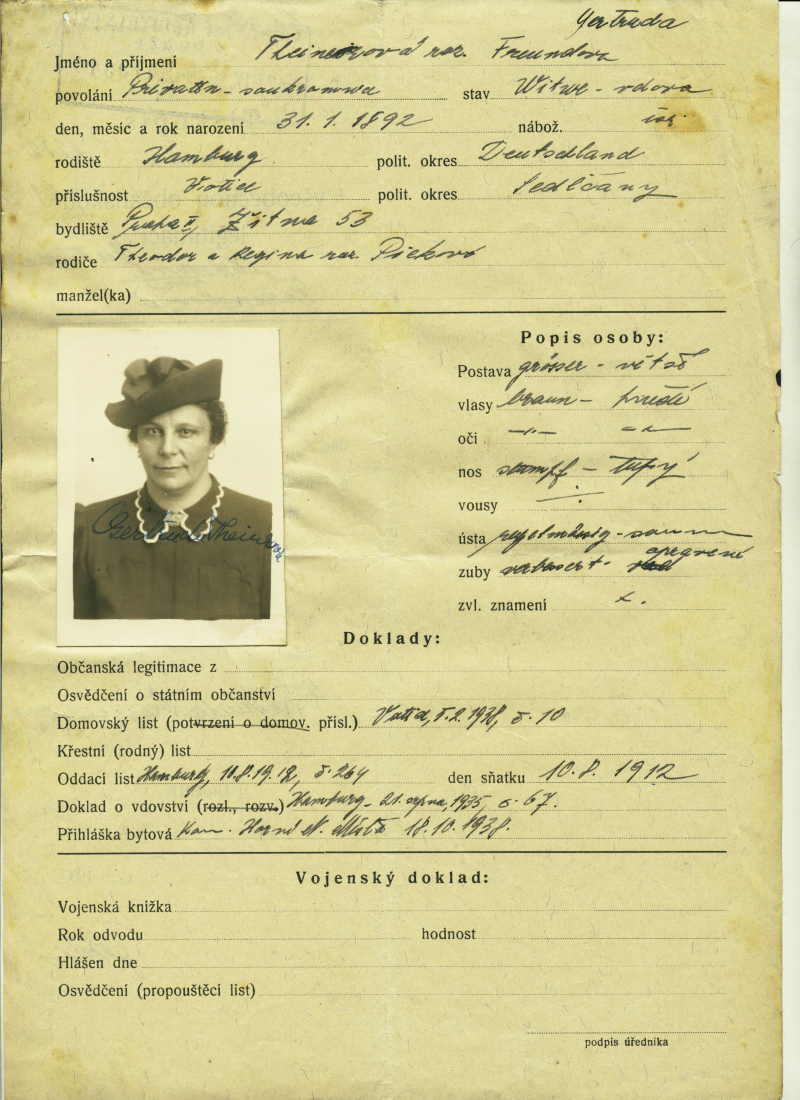 Gertruda
Jméno a příjmení Theinerová roz. Freundova
povolání Privatin - soukromnice stav Witwe - vdova
den, měsíc a rok narození 31. 1. 1892 nábož. isr.
rodiště Hamburg polit. okres Deutschland
příslušnost Votice polit. okres Sedlčany
bydliště Praha II, Žitna 53
rodiče Theodor a Regina roz. Pickové
manžel(ka)
Popis osoby:
Postava grösser - větší
vlasy braun - hnědé
oči -"- -"-
nos stumpf - tupý
vousy
ústa regelmässig -
zuby verbessert - opravené
zvl. znamení
Gertruda Theinerová
Doklady:
Občanská legitimace z
Osvědčení o státním občanství
Domovský list (potvrzení o domov. přísl.) 1938, č. 10
Křestní (rodný) list
Oddací list Hamburg, 10.8.1912, č. 264 den sňatku 10. 8. 1912
Doklad o vdovství (rozl., rozv.) Hamburg - 21. srpna, 1935, č. 67.
Přihláška bytová kom. Horní N. Město 18.10.1938.
Vojenský doklad:
Vojenská knížka
Rok odvodu hodnost
Hlášen dne
Osvědčení (propouštěcí list)
podpis úředníka